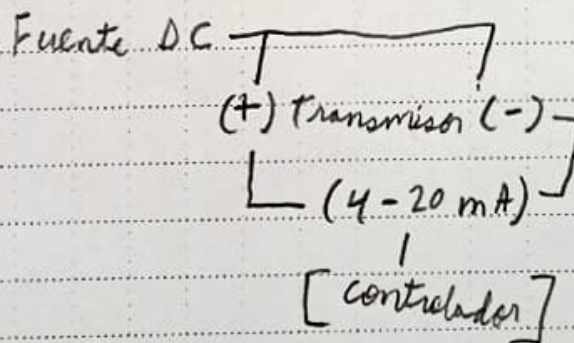 Fuente DC
(+) Transmisor (-)
(4-20 mA)
[controlador]